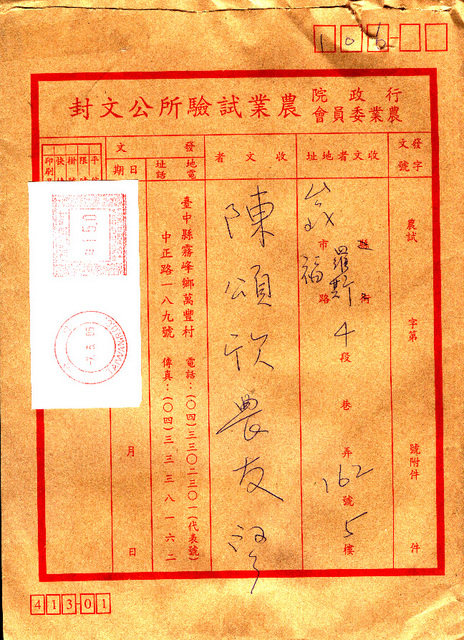 106
行政院農業委員會農業試驗所公文封
發文字號
農試 字第 號附件 件
收文者地址
縣市 街路 段 巷 弄 號 樓
羅斯福 4 162 5
收文者
陳頌欣農友
發文
地址 電話
臺中縣霧峰鄉萬豐村
中正路一八九號
電話：(〇四)三三〇二三〇一(代表號)
傳真：(〇四)三三三八一六二
日期
月 日
印刷
0150
41301